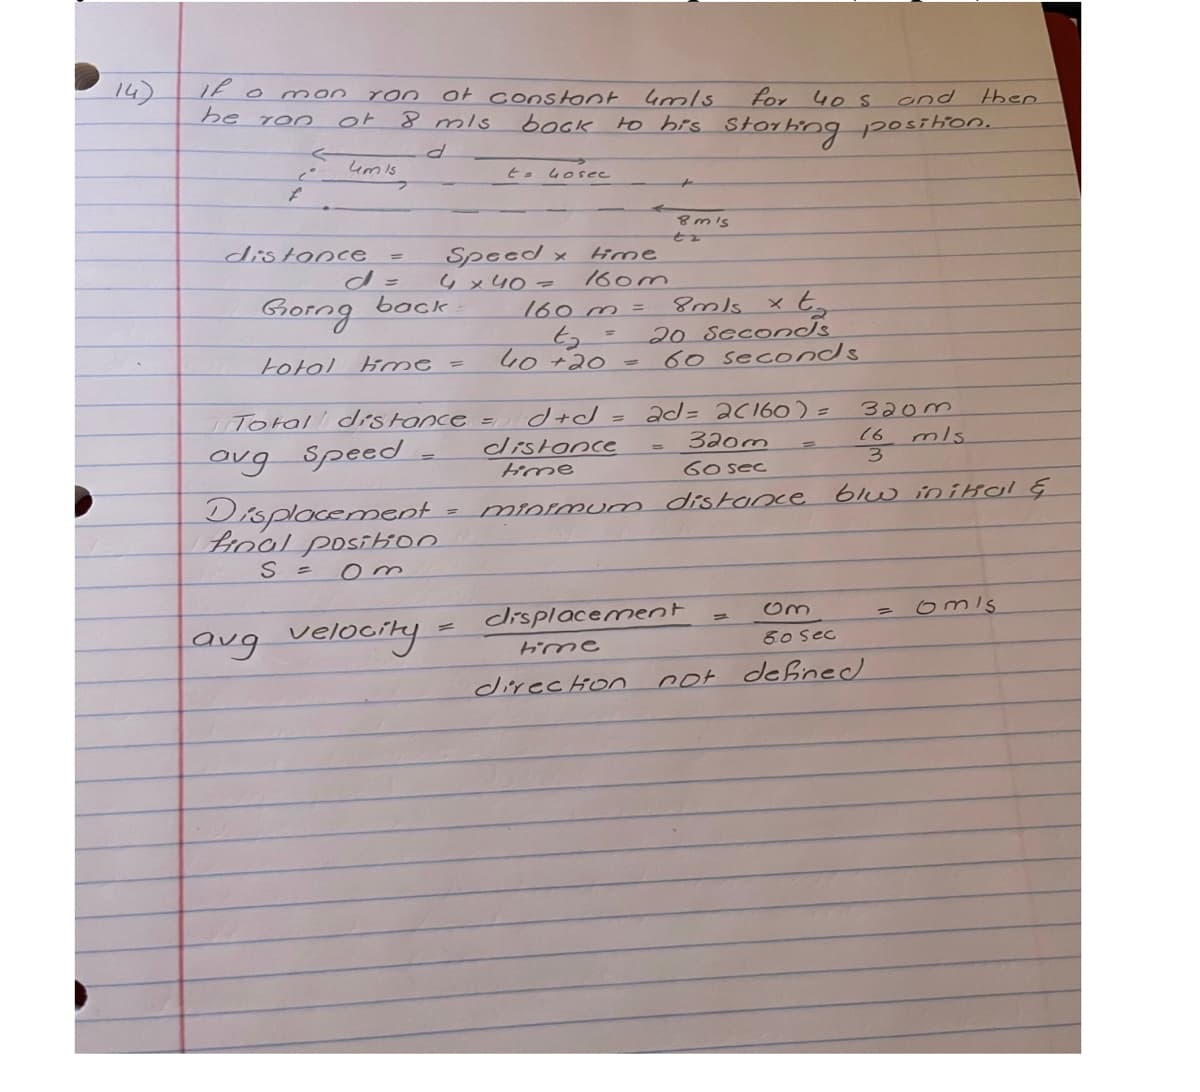 14) If a man ran at constant 4m/s for 40 s and then
he ran at 8 m/s back to his starting position.
d
i 4m/s t = 40sec
f
8 m/s
t2
distance = Speed x time
d = 4 x 40 = 160m
Going back 160 m = 8m/s x t2
t2 = 20 seconds
total time = 40 + 20 = 60 seconds
Total distance = d+d = 2d = 2(160) = 320m
avg speed = distance/time = 320m/60 sec = 16/3 m/s
Displacement = minimum distance b/w initial &
final position
S = 0 m
avg velocity = displacement/time = 0m/60 sec = 0 m/s
direction not defined